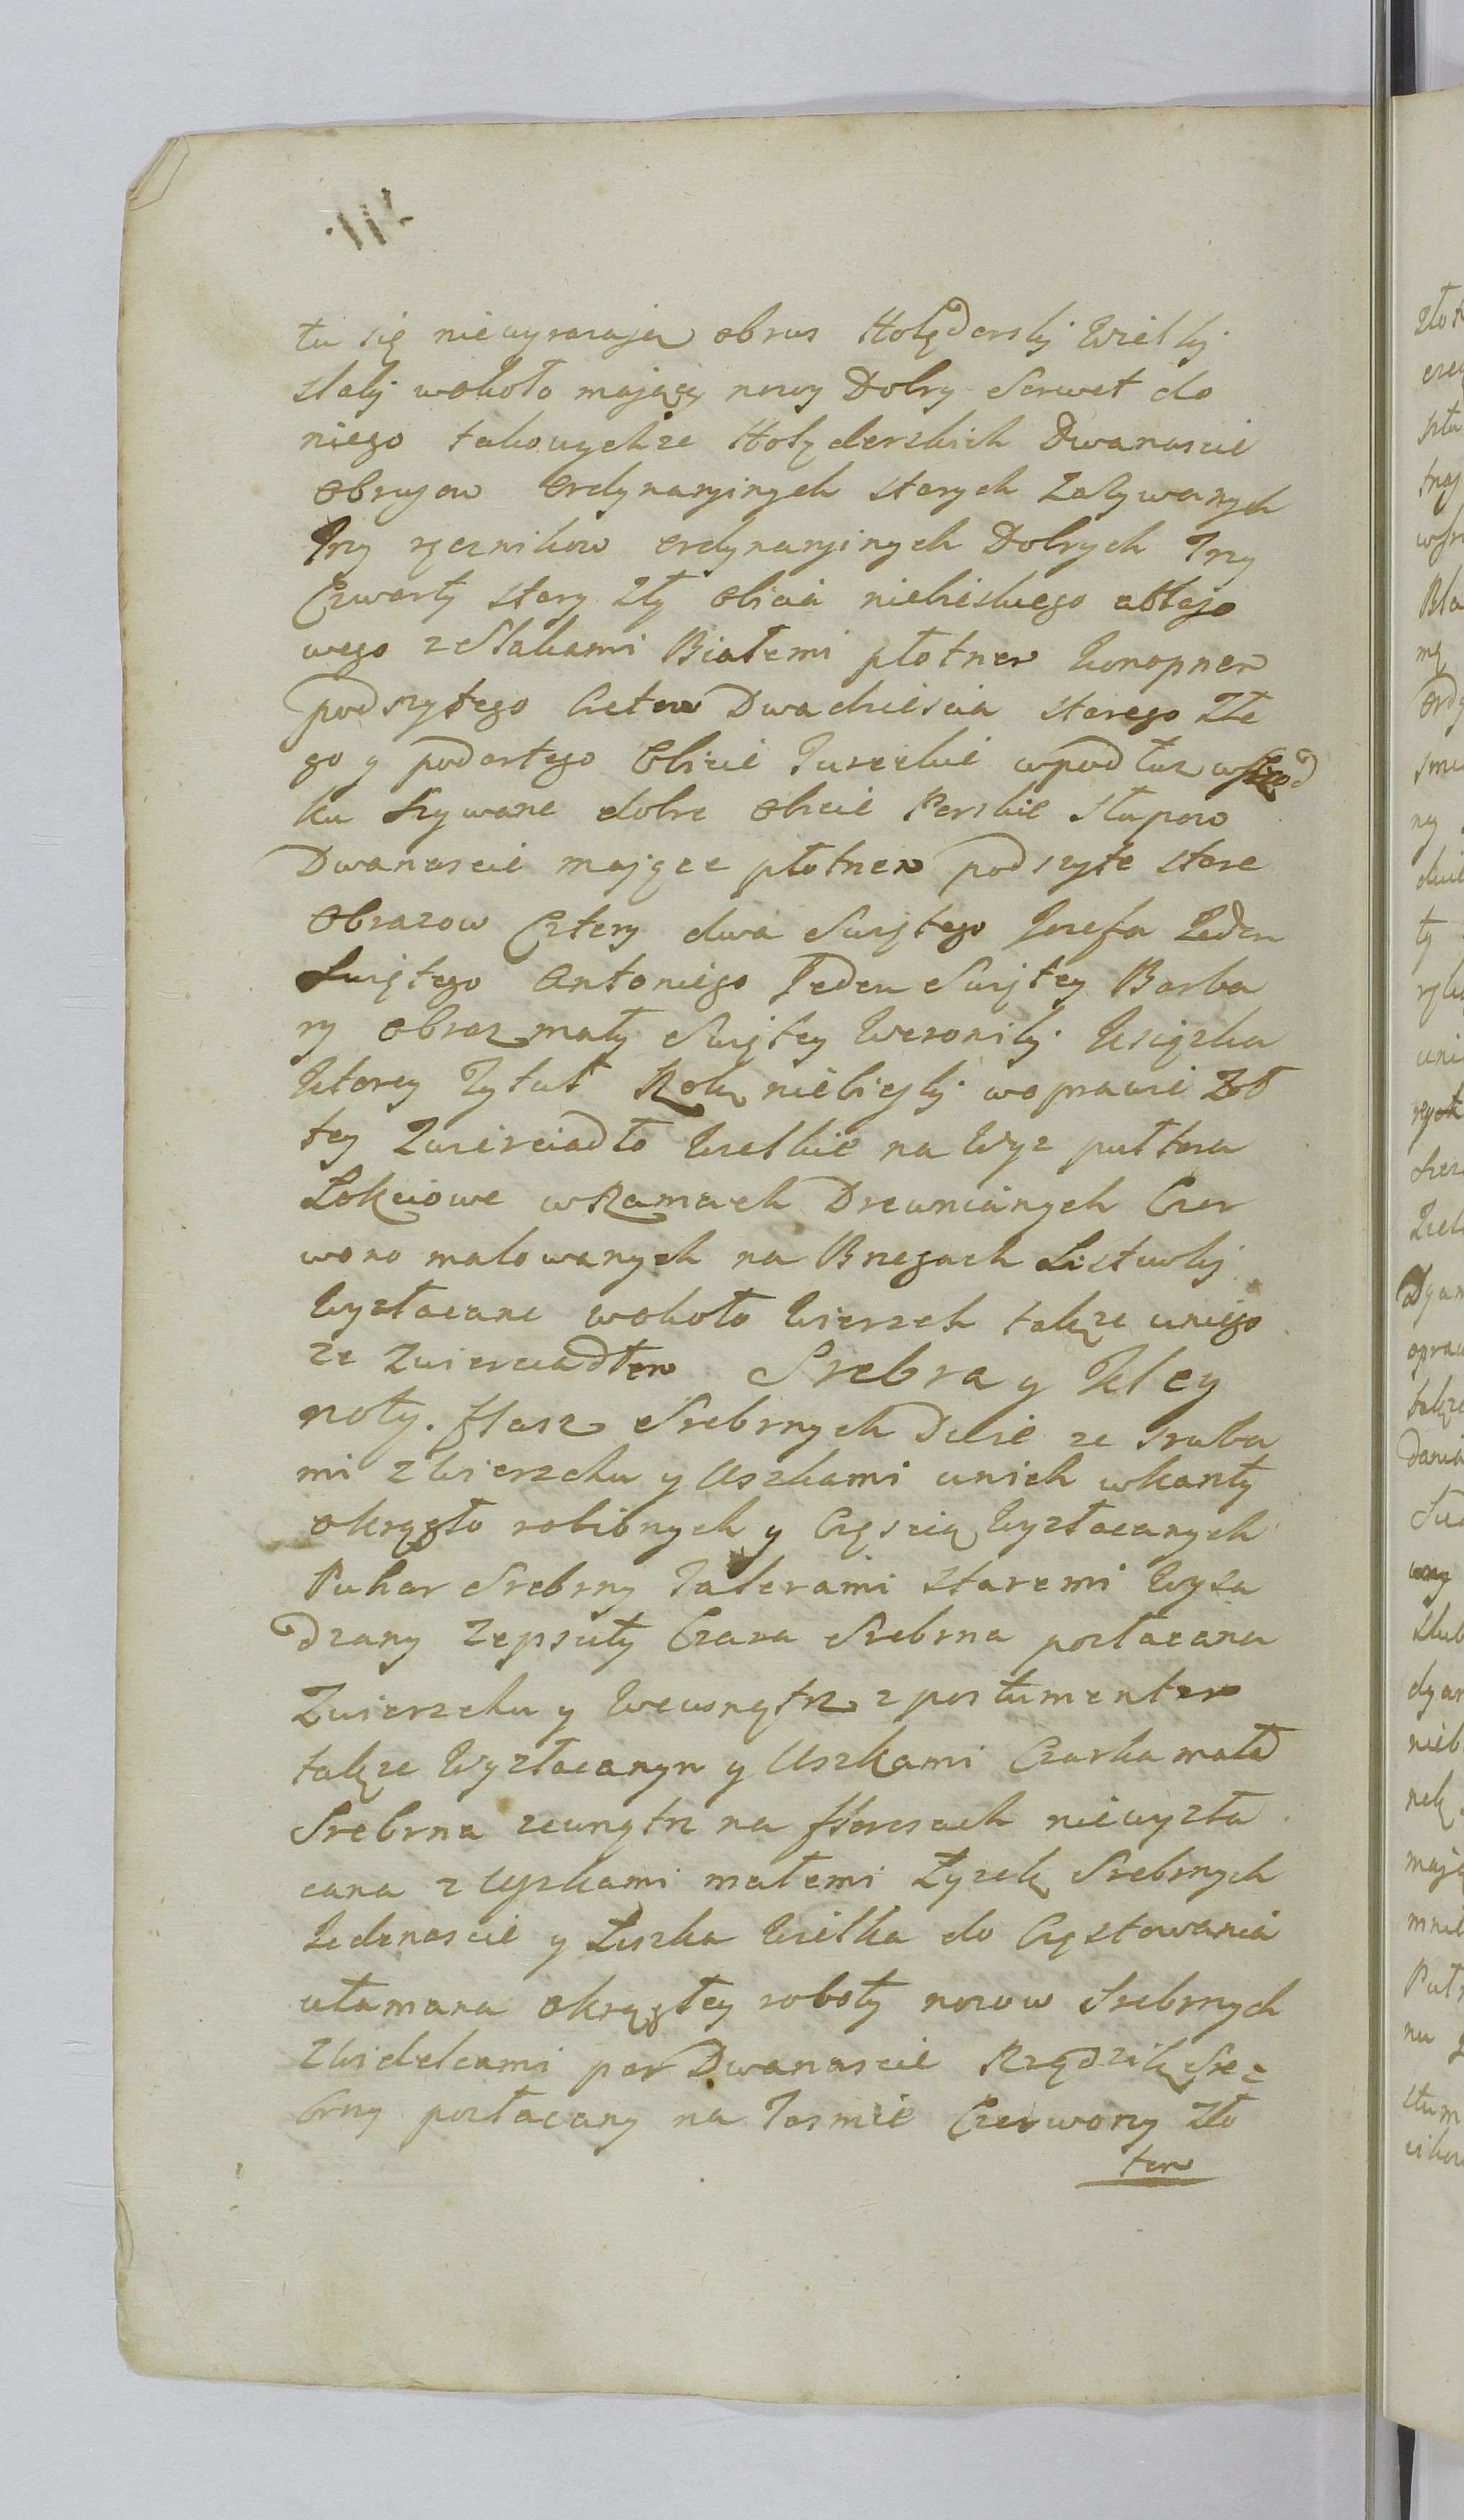 tu się niewyrazają obrus Holęderskj Wielkj
slakj wokoło mający nowy Dobry Serwet do
niego takowychze Holęderskich Dwanascie
Obrusow Ordynaryinych starych Zazywanych
Trzy ręcznikow ordynaryinych Dobrych Trzy
Czwarty stary Zły obicia niebieskiego atłaso
wego z Slakami Białemi płotnem konopnem
podszytego Bretow Dwadziescia starego Złe
go y podartego Obicie Tureckie wpodłuz wsrzod
ku szywane dobre Obicie Perskie Słupow
Dwanascie mające płotnem podszyte stare
Obrazow Cztery dwa Swiętego Jozefa Jeden
Swiętego Antoniego Jeden Swiętey Barba
ry obraz mały Swiętey Weronikj Ksiązka
Ktorey Tytuł Rok niebieskj woprawie Zoł
tey Zwierciadło Wielkie na Wyz pułtora
Łokciowe wRamach Drewnianych Czer
wono malowanych na Brzegach Listwkj
Wyzłacane wokoło Wierzch takze uniego
ze Zwierciadłem Srebra y Kley
noty. flasz Srebrnych Dwie ze sruba
mi z Wierzchu y Uszkami unich wkanty
okrągło robionych y Częscią Wyzłacanych
Puhar Srebrny Talerami staremi Wysa
dzany Zepsuty Czara Srebrna pozłacana
Zwierzchu y Wewnątrz z postumentem
takze Wyzłacanym y Uszkami Czarka mała
Srebrna zewnątrz na floresach niewyzła
cana z Uszkami małemi Łyzek Srebrnych
Jedenascie y Łyszka Wielka do Częstowania
ułamana okrągłey roboty nozow Srebrnych
zWidelcami par Dwanascie Rządzik Sre=
brny pozłacany na Tasmie Czerwony Zło
tem